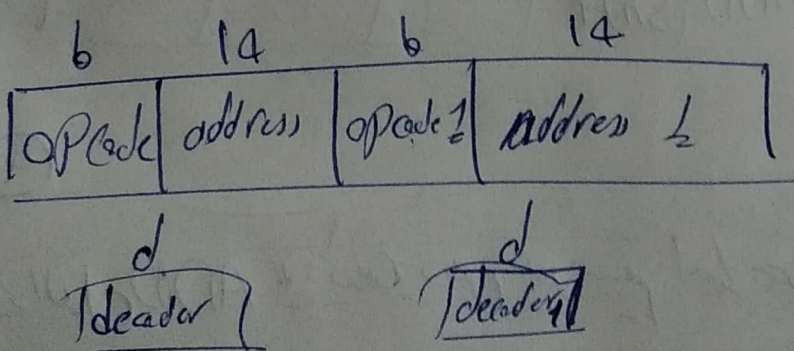 6 14 6 14
opcode address opcode 1 address 1
d d
decoder decoder 1